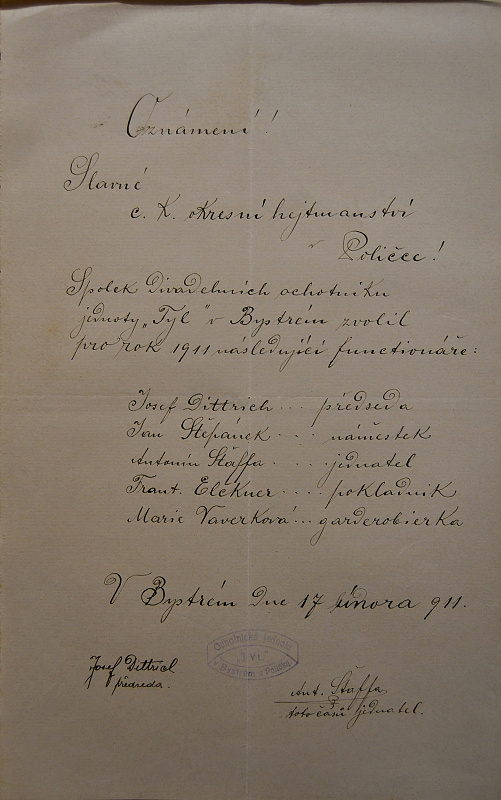 Oznámení!
Slavné
c. K. okresní hejtmanství
v Poličce!
Spolek divadelních ochotníku
jednoty „Týl" v Bystrém zvolil
pro rok 1911 následující functionáře:
Josef Dittrich ... předseda
Jan Štěpánek ... náměstek
Antonín Štáffa ... jednatel
Frant. Elekner .... pokladník
Marie Vaverková ... garderobierka
V Bystrém dne 17 února 911.
Ochotnická jednota
"Tyl"
v Bystrém u Poličky
Josef Dittrich
předseda.
Ant. Štáffa
toto času jednatel.